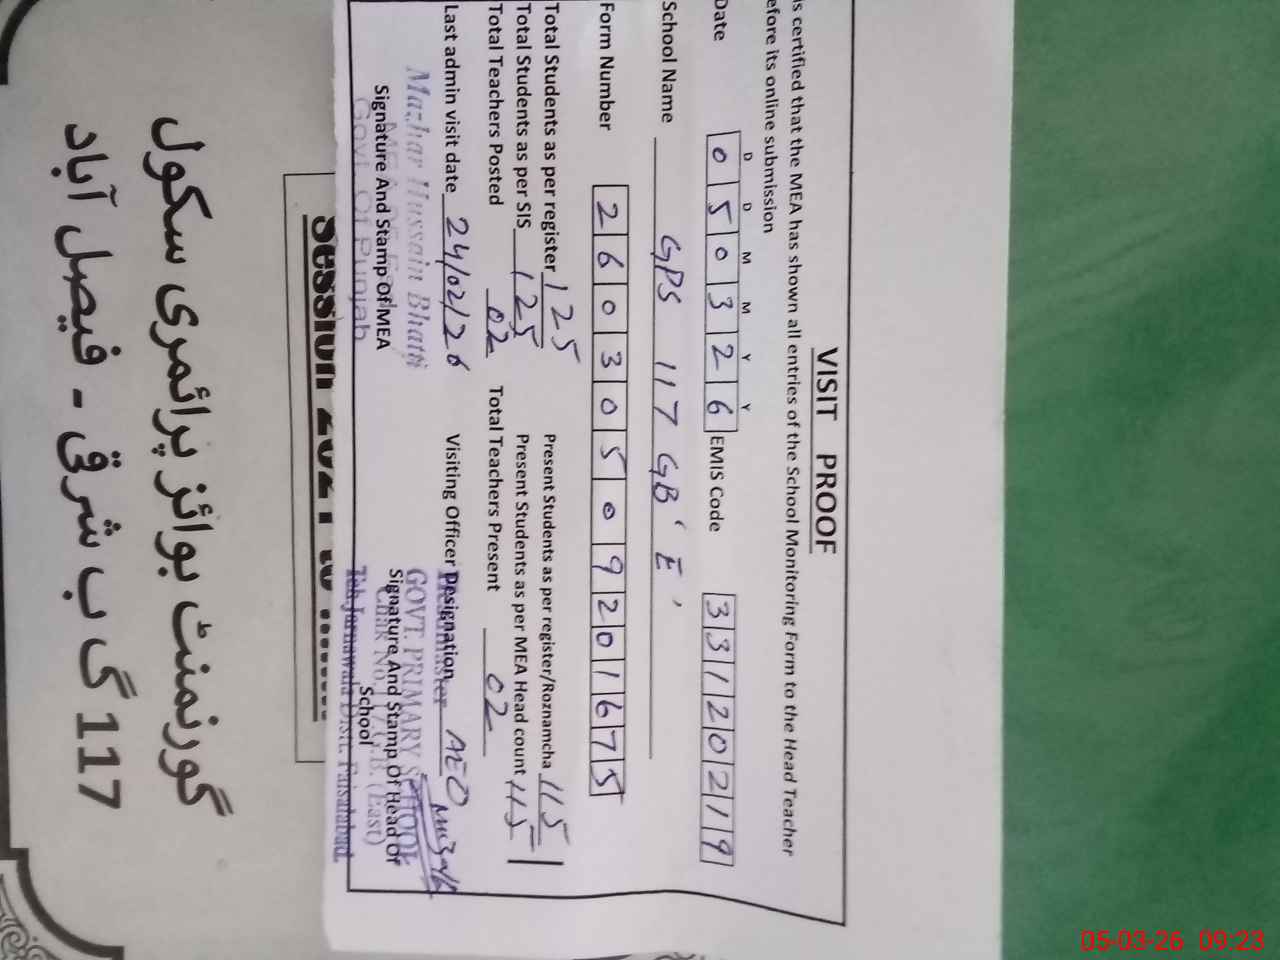 VISIT PROOF
is certified that the MEA has shown all entries of the School Monitoring Form to the Head Teacher
efore its online submission
D D M M Y Y
Date 0 5 0 3 2 6 EMIS Code 3 3 1 2 0 2 1 9
School Name GPS 117 GB 'E'
Form Number 2 6 0 3 0 5 0 9 2 0 1 6 7 5
Total Students as per register 125 Present Students as per register/Roznamcha 115
Total Students as per SIS 125 Present Students as per MEA Head count 115
Total Teachers Posted 02 Total Teachers Present 02
Last admin visit date 24/02/26 Visiting Officer Designation AEO
Mazhar Hussain Bhatti
Signature And Stamp Of MEA
Govt. Of Punjab
GOVT. PRIMARY SCHOOL
Signature And Stamp Of Head Of
School
Chak No. 117 G.B. (East)
Teh Jaranwala Distt. Faisalabad.
Session 2021 to
گورنمنٹ بوائز پرائمری سکول
117 گ ب شرقی - فیصل آباد
05-03-26 09:23